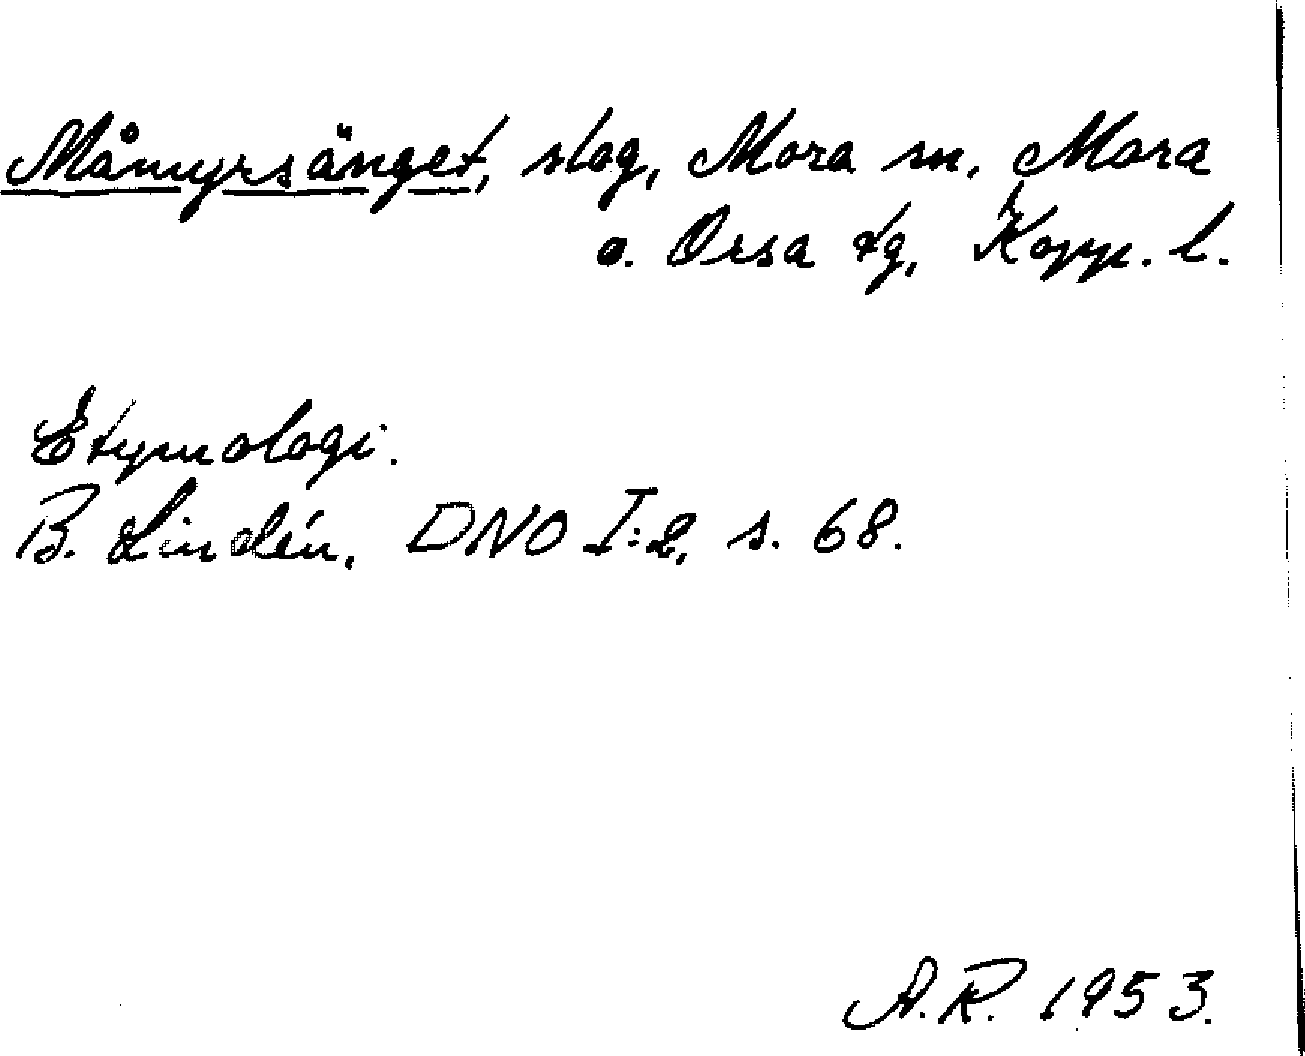 Måmyrsänget, slog, Mora sn. Mora
o. Orsa tg, Kopp. l.
Etymologi.
B. Lindén, DNO I:2, s. 68.
A.R. 1953.